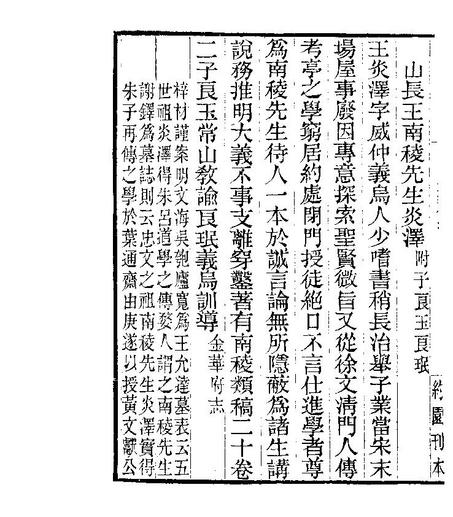 山長王南稜先生炎澤附子良玉良珉
王炎澤字威仲義烏人少嗜書稍長治舉子業當宋末
場屋事廢因專意探索聖賢微旨又從徐文淸門人傳
考亭之學窮居約處閉門授徒絕口不言仕進學者尊
爲南稜先生待人一本於誠言論無所隱蔽爲諸生講
說務推明大義不事支離穿鑿著有南稜類稿二十卷
二子良玉常山敎諭良珉義烏訓導金華府志
梓材謹案明文海吳匏廬寬爲王允達墓表云五
世祖炎澤得朱呂道學之傳婺人謂之南稜先生
謝鐸爲墓誌則云忠文之祖南稜先生炎澤實得
朱子再傳之學於葉通齋由庚遂以授黃文獻公
約園刊本